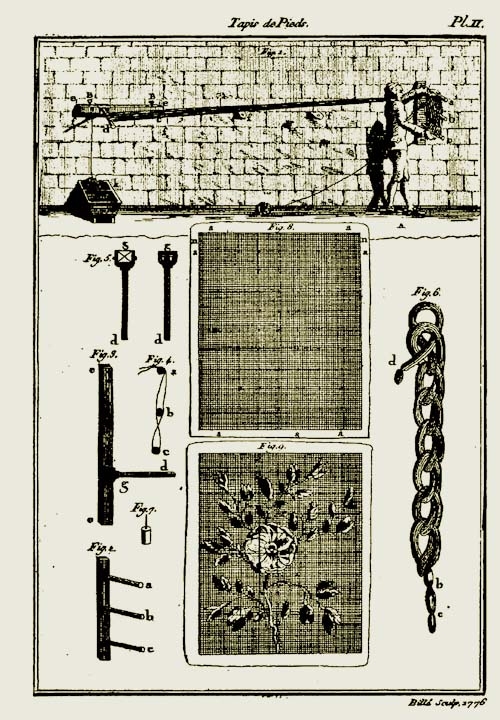 Tapis de Pieds.
Pl. II.
Fig. 1.
B B
d
b
a
Fig. 8.
a a
m n
a a
Fig. 5. g g
d d
Fig. 6.
d
b
c
Fig. 3. Fig. 4.
a
b
c
d
g
Fig. 7.
Fig. 2.
a
b
c
a g a
Fig. 9.
Billé Sculp. 1776